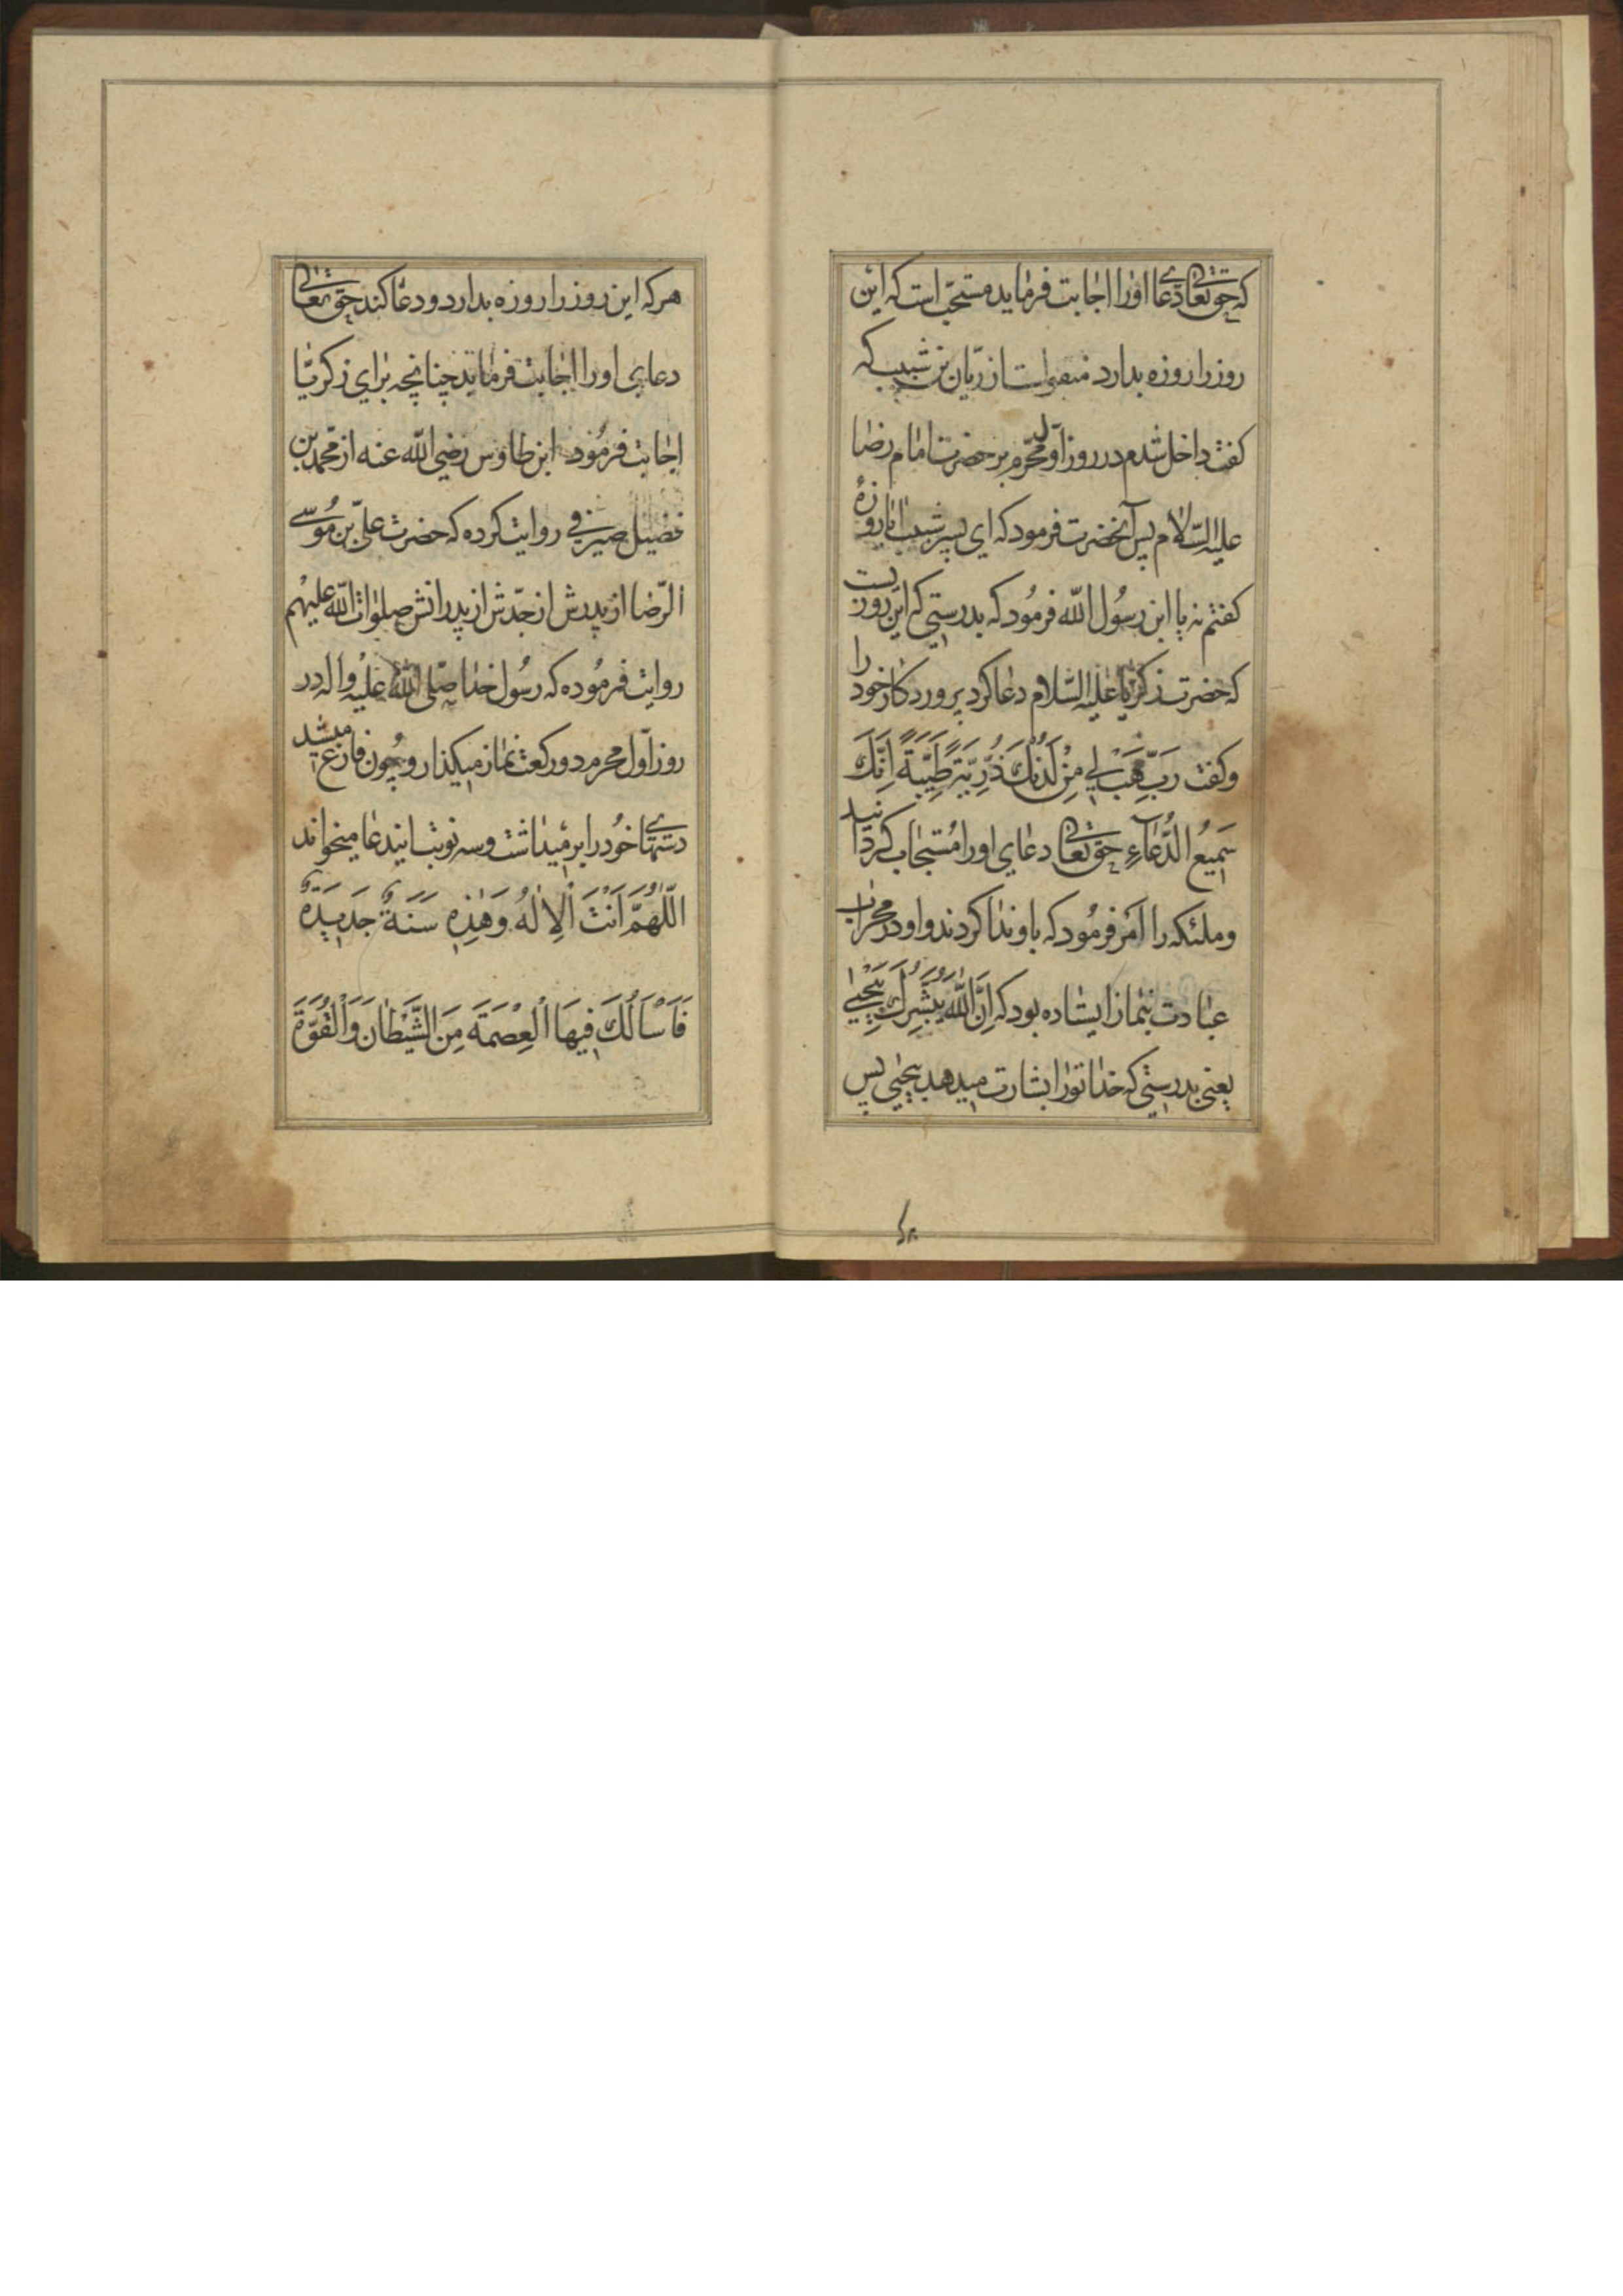 که حق تعالی دعای او را اجابت فرماید مستحب است که این
روز را روزه بدارد منقولست از ریّان بن شبیب که
کفت داخل شدم در روز اوّل محرّم بر حضرت امام رضا
علیه السّلام پس آنحضرت فرمود که ای پسر شبیب ایا روزهٔ
کفتم نه یا ابن رسُول الله فرمُود که بدرستی که این روزیست
که حضرت زکریّا علیه السّلام دعا کرد پروردکار خود را
وکفت رَبِّ هَبْ لِي مِنْ لَدُنْكَ ذُرِّيَّةً طَيِّبَةً اِنَّكَ
سَمِيعُ الدُّعَآءِ حق تعالی دعای اورا مُستجاب کردانید
وملئکه را اَمر فرمُود که باو ندا کردند واو در محراب
عبادت بنماز ایستاده بود که اِنَّ اللهَ يُبَشِّرُكَ بِيَحْيٰي
یعنی بدرستی که خدا تورا بشارت میدهد بیحیی پس
هر که این روز را روزه بدارد و دعا کند حق تعالی
دعای اورا اجابت فرماید چنانچه برای زکریّا
اجابت فرمُود ابن طاوس رضی الله عنه از محمد بن
فضیل صیرفی روایت کرده که حضرت علیّ بن مُوسی
الرّضا از پدرش از جدّش از پدرانش صلوات الله علیهم
روایت فرمُوده که رسُول خدا صلّی الله علیه واله در
روز اوّل محرم دو رکعت نماز میکذارد وچُون فارغ میشد
دستهای خُود را بر میداشت وسه نوبت ایندعا میخواند
اَللّٰهُمَّ اَنْتَ الْاِلٰهُ وَهٰذِهِ سَنَةٌ جَدِيدَةٌ
فَاَسْاَلُكَ فِيهَا الْعِصْمَةَ مِنَ الشَّيْطَانِ وَالْقُوَّةَ